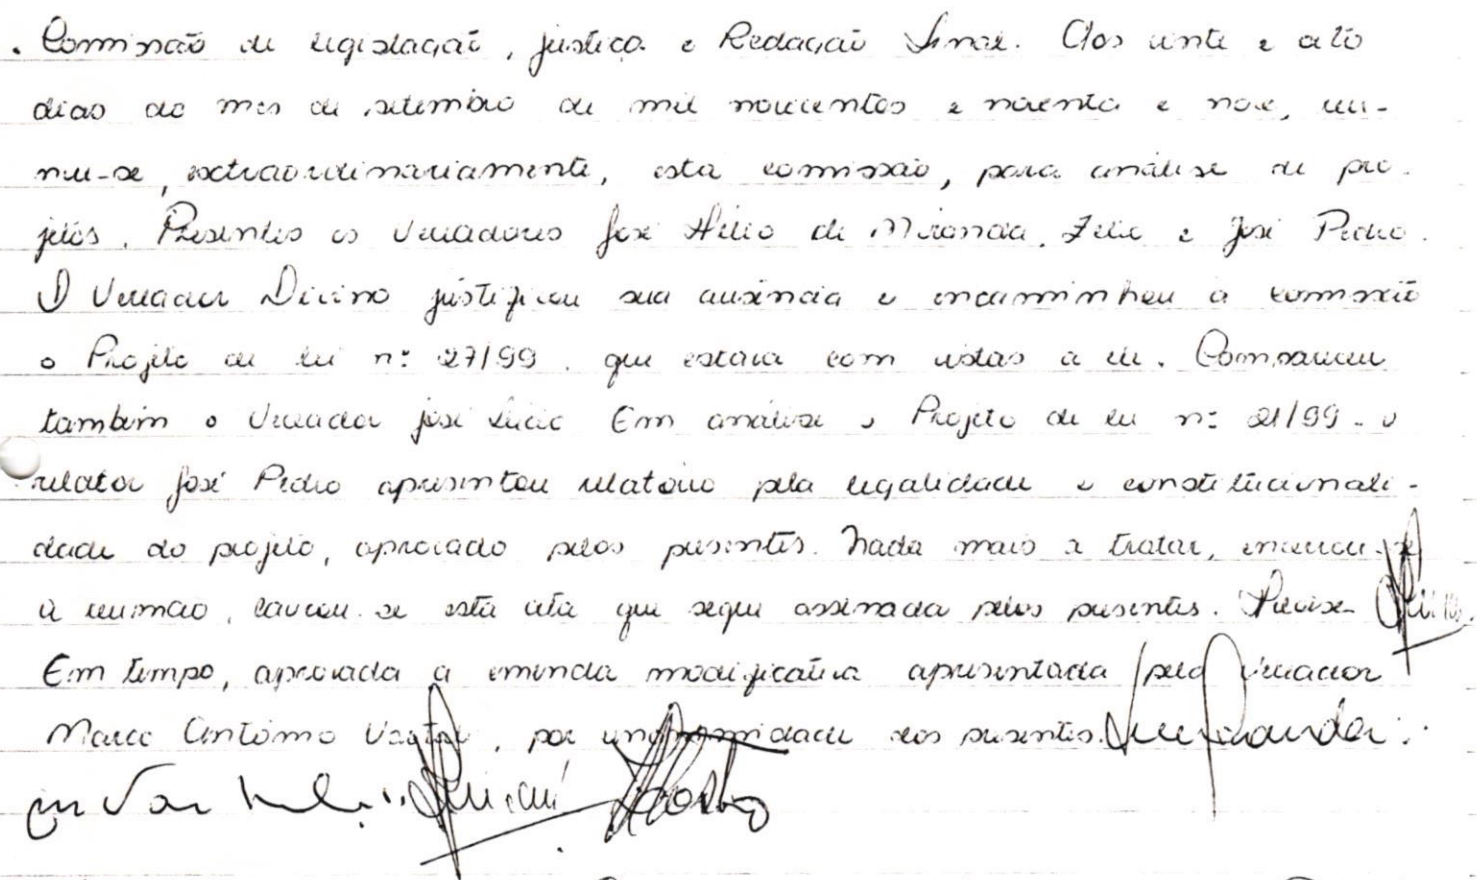 . Comissão de legislação, justiça e Redação Final. Aos vinte e oito
dias do mês de setembro de mil novecentos e noventa e nove, reu-
niu-se, extraordinariamente, esta comissão, para análise de pro-
jetos. Presentes os Vereadores José Hélio de Miranda, Felix e José Pedro.
O Vereador Divino justificou sua ausência e encaminhou a comissão
o Projeto de lei nº 27/99. que estava com vistas a ele. Compareceu
também o Vereador José Lúcio Em análise o Projeto de lei nº 21/99 - o
relator José Pedro apresentou relatório pela legalidade e constitucionali-
dade do projeto, aprovado pelos presentes. Nada mais a tratar, encerrou-se
a reunião, lavrou-se esta ata que segue assinada pelos presentes.
Em tempo, aprovada a emenda modificativa apresentada pelo Vereador
Marco Antônio, por unanimidade dos presentes.